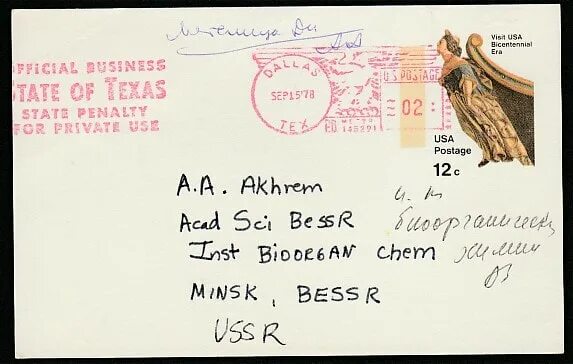 Visit USA
Bicentennial
Era
OFFICIAL BUSINESS
STATE OF TEXAS
STATE PENALTY
FOR PRIVATE USE
DALLAS
SEP 15 '78
TEX
U.S. POSTAGE
02
METER
145291
USA
Postage
12c
A.A. Akhrem
Acad Sci BESSR
Inst BIOORGAN Chem
MINSK, BESSR
USSR
химии